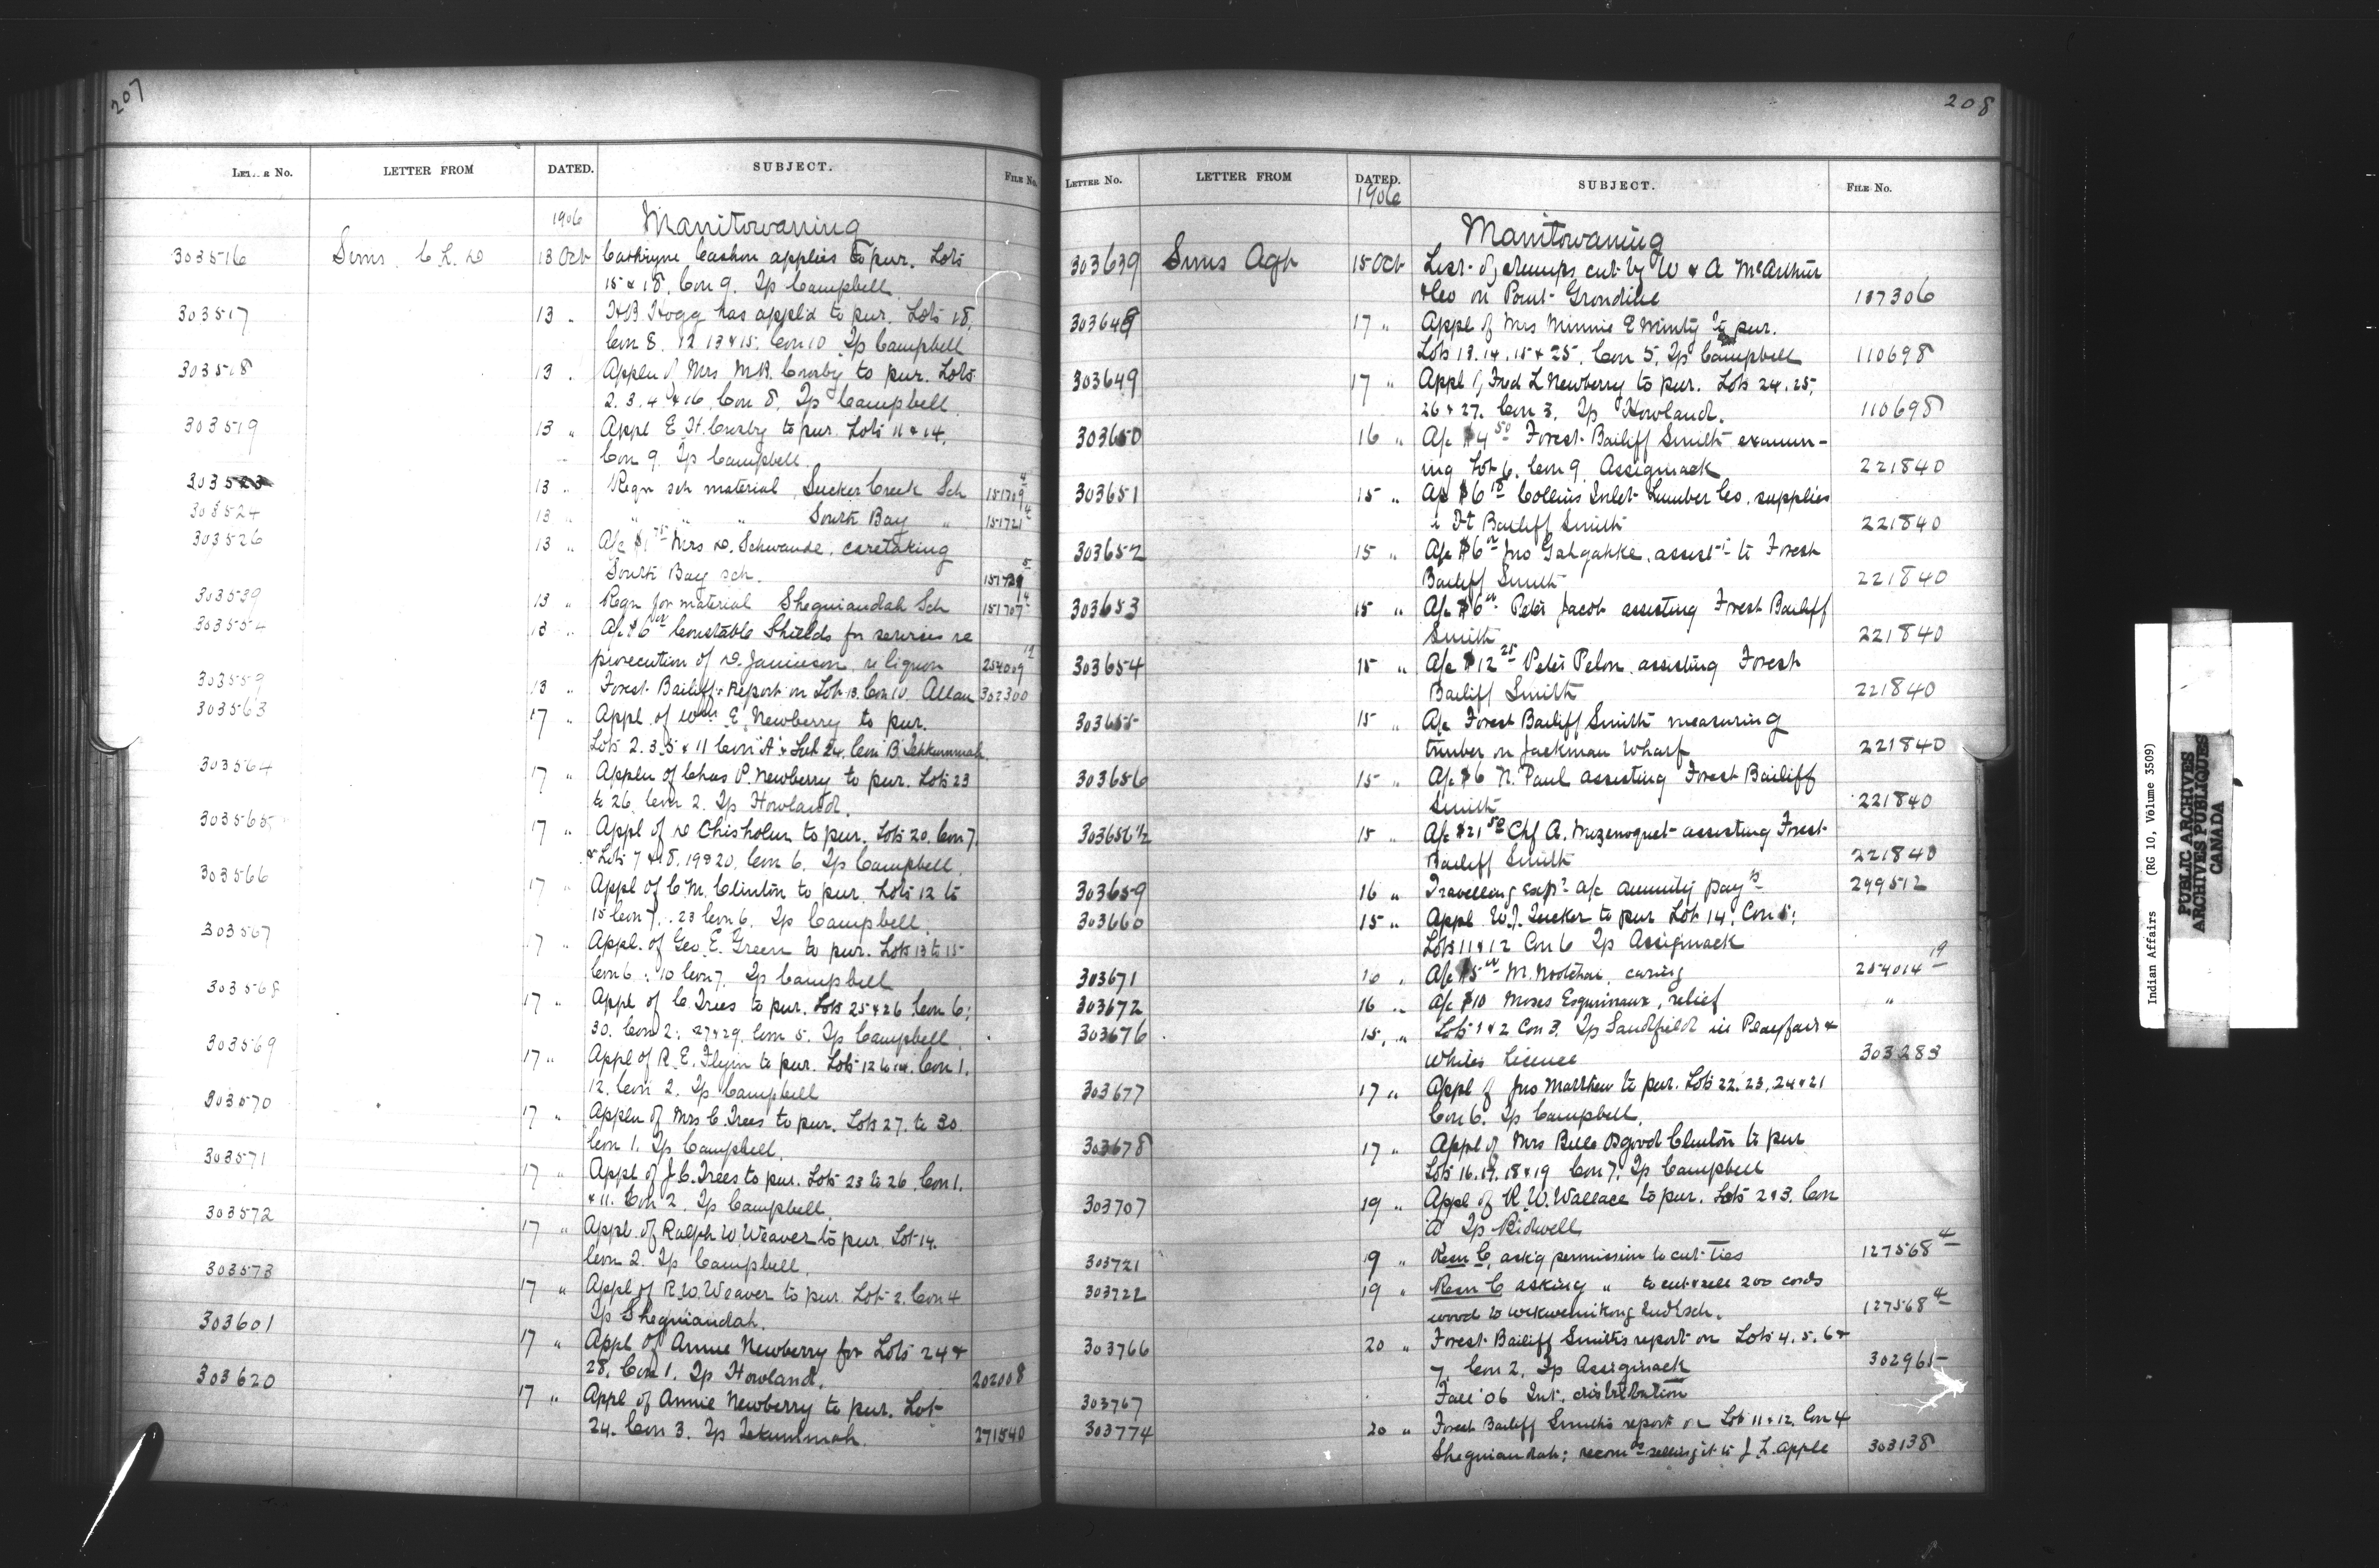 207
LETTER No. LETTER FROM DATED. SUBJECT. FILE No.
1906 Manitowaning
303516 Sims C. L. D 13 Oct Cathryne Cashon applies to pur. Lots
15 & 18, Con 9. Tp Campbell
303517 13 " H B Hogg has appl'd to pur. Lots 18,
Con 8. 12. 13 & 15. Con 10 Tp Campbell
303518 13 " Appln of Mrs M.B. Crosby to pur. Lots
2. 3. 4 & 16, Con 8, Tp Campbell
303519 13 " Appl E. H. Crosby to pur. Lots 11 & 14,
Con 9. Tp Campbell
303523 13 " Reqn sch material Sucker Creek Sch 151709 4
303524 13 " " " " South Bay " 151721 4
303526 13 " A/c $1 75 Mrs D. Schwande, caretaking
South Bay sch. 151721 5
303539 13 " Reqn for material Sheguiandah Sch 151707 4
303554 13 " A/c $6 00 Constable Shields for services re
prosecution of D. Jamieson, re liquor 254009 12
303559 13 " Forest Bailiff's Report on Lot 13. Con 10. Allan 302300
303563 17 " Appl. of Wm E. Newberry to pur.
Lots 2. 3. 5 & 11 Con 'A' & Lot 24. Con 'B' Tehkummah.
303564 17 " Appln of Chas P. Newberry to pur. Lots 23
to 26. Con 2. Tp Howland.
303565 17 " Appl of D Chisholm to pur. Lots 20. Con 7,
& Lots 7 & 18, 19 & 20. Con 6. Tp Campbell.
303566 17 " Appl of C. M. Clinton to pur. Lots 12 to
15 Con 7, . 23 Con 6. Tp Campbell.
303567 17 " Appl. of Geo. E. Green to pur. Lots 13 to 15
Con 6. : 10 Con 7. Tp Campbell
303568 17 " Appl of C. Trees to pur. Lots 25 & 26 Con 6;
30. Con 2: 27 & 29. Con 5. Tp Campbell.
303569 17 " Appl of R. E. Flynn to pur. Lots 12 to 14. Con 1.
12. Con 2. Tp Campbell
303570 17 " Appln of Mrs C. Trees to pur. Lots 27. to 30.
Con 1. Tp Campbell.
303571 17 " Appl of J. C. Trees to pur. Lots 23 to 26. Con 1.
& 11. Con 2. Tp Campbell.
303572 17 " Appl. of Ralph W. Weaver to pur. Lot 14.
Con 2. Tp Campbell.
303573 17 " Appl of R. W. Weaver to pur. Lot 2. Con 4
Tp Sheguiandah.
303601 17 " Appl of Annie Newberry for Lots 24 &
28. Con 1. Tp Howland. 202008
303620 17 " Appl of Annie Newberry to pur. Lot
24. Con 3. Tp Tekummah. 271540
208
LETTER No. LETTER FROM DATED. SUBJECT. FILE No.
1906
Manitowaning
303639 Sims Agt 15 Oct List of stumps cut by W & A McArthur
& Co on Point Grondine 187306
303648 17 " Appl of Mrs Minnie E Minty to pur.
Lots 13. 14. 15 & 25. Con 5. Tp Campbell 110698
303649 17 " Appl of Fred L Newberry to pur. Lots 24. 25,
26 & 27. Con 3. Tp Howland. 110698
303650 16 " A/c $4 50 Forest Bailiff Smith examin-
ing Lot 6. Con 9. Assiginack 221840
303651 15 " A/c $6 18 Collins Inlet Lumber Co. supplies
Ft Bailiff Smith 221840
303652 15 " A/c $6 00 Jno Gahgahke. assist to Forest
Bailiff Smith 221840
303653 15 " A/c $6 00 Peter Jacob assisting Forest Bailiff
Smith 221840
303654 15 " A/c $12 25 Peter Pelon assisting Forest
Bailiff Smith 221840
303655 15 " A/c Forest Bailiff Smith measuring
timber on Jackman wharf 221840
303656 15 " A/c $6 N. Paul assisting Forest Bailiff
Smith 221840
303656½ 15 " A/c $21 50 Chf A. Mizenoquet assisting Forest
Bailiff Smith 221840
303659 16 " Travelling exp's a/c annuity pay'ts 299512
303660 15 " Appl W. J. Tucker to pur Lot 14. Con 5;
Lots 11 & 12 Con 6 Tp Assiginack
303671 16 " A/c $5 00 M. , caring 254014 19
303672 16 " A/c $10 Moses Esquimaux, relief "
303676 15 " Lots 1 & 2 Con 3. Tp Sandfield in Playfair &
Whites licence 303283
303677 17 " Appl of Jno Matthew to pur. Lots 22. 23, 24 & 21
Con 6. Tp Campbell.
303678 17 " Appl of Mrs Belle Osgood Clinton to pur
Lots 16. 17. 18 & 19 Con 7. Tp Campbell
303707 19 " Appl of R. W. Wallace to pur. Lots 2 & 3. Con
A Tp Bidwell
303721 19 " C. ask'g permission to cut ties 127568 4
303722 19 " C asking " to cut & sell 200 cords
wood to Wikwemikong Indl sch. 127568 4
303766 20 " Forest Bailiff Smiths report on Lots 4. 5. 6 &
7. Con 2. Tp Assiginack 302965
303767 Fall '06 Int. distribution
303774 20 " Forest Bailiff Smith's report on Lot 11 & 12. Con 4
Sheguiandah; recom ds selling it to J. L. Apple 303138
Indian Affairs (RG 10, Volume 3509)
PUBLIC ARCHIVES
ARCHIVES PUBLIQUES
CANADA